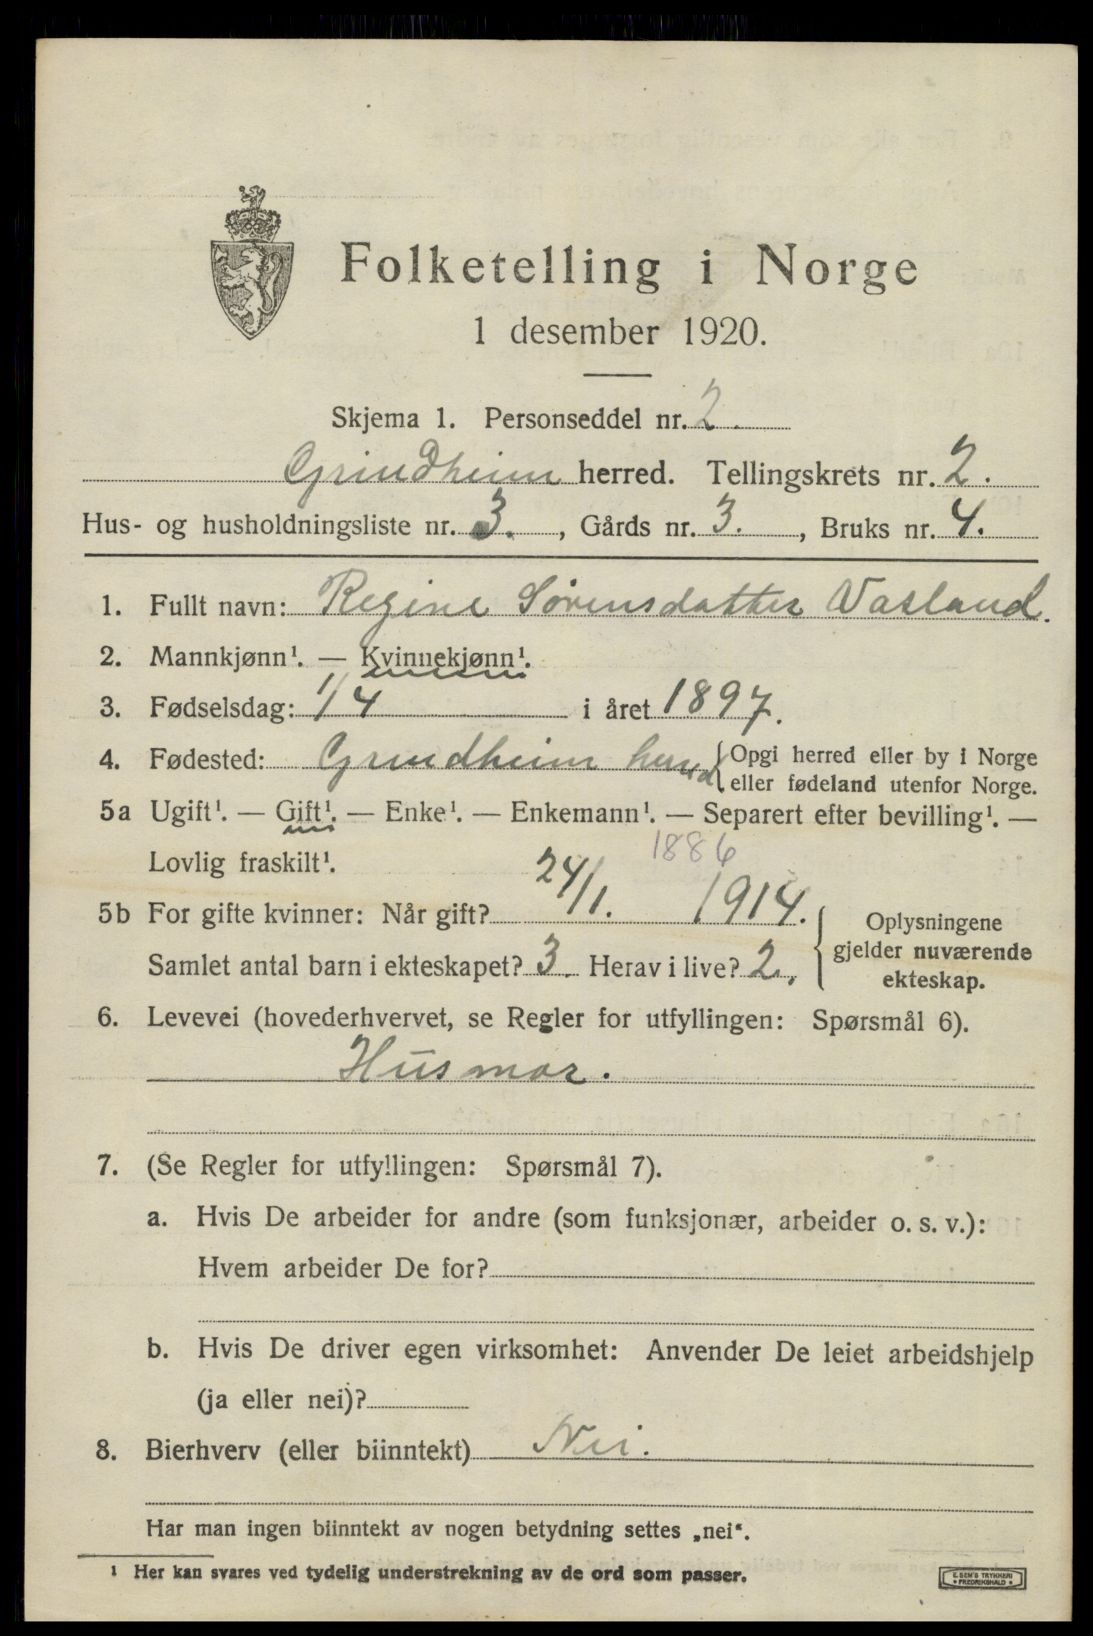 Folketelling i Norge
1 desember 1920.
Skjema 1. Personseddel nr. 2.
Grindheim herred. Tellingskrets nr. 2.
Hus- og husholdningsliste nr. 3., Gårds nr. 3., Bruks nr. 4.
1. Fullt navn: Regine Sørensdatter Vasland.
2. Mannkjønn¹. — Kvinnekjønn¹.
3. Fødselsdag: 1/4 i året 1897.
4. Fødested: Grindheim herred {Opgi herred eller by i Norge
eller fødeland utenfor Norge.
5a Ugift¹. — Gift¹. — Enke¹. — Enkemann¹. — Separert efter bevilling¹. —
Lovlig fraskilt¹. 1886
5b For gifte kvinner: Når gift? 24/1. 1914.
Samlet antal barn i ekteskapet? 3. Herav i live? 2.
Oplysningene
gjelder nuværende
ekteskap.
6. Levevei (hovederhvervet, se Regler for utfyllingen: Spørsmål 6).
Husmor.
7. (Se Regler for utfyllingen: Spørsmål 7).
a. Hvis De arbeider for andre (som funksjonær, arbeider o. s. v.):
Hvem arbeider De for?
b. Hvis De driver egen virksomhet: Anvender De leiet arbeidshjelp
(ja eller nei)?
8. Bierhverv (eller biinntekt) Nei.
Har man ingen biinntekt av nogen betydning settes „nei“.
¹ Her kan svares ved tydelig understrekning av de ord som passer.
E. SEM'S TRYKKERI
FREDRIKSHALD